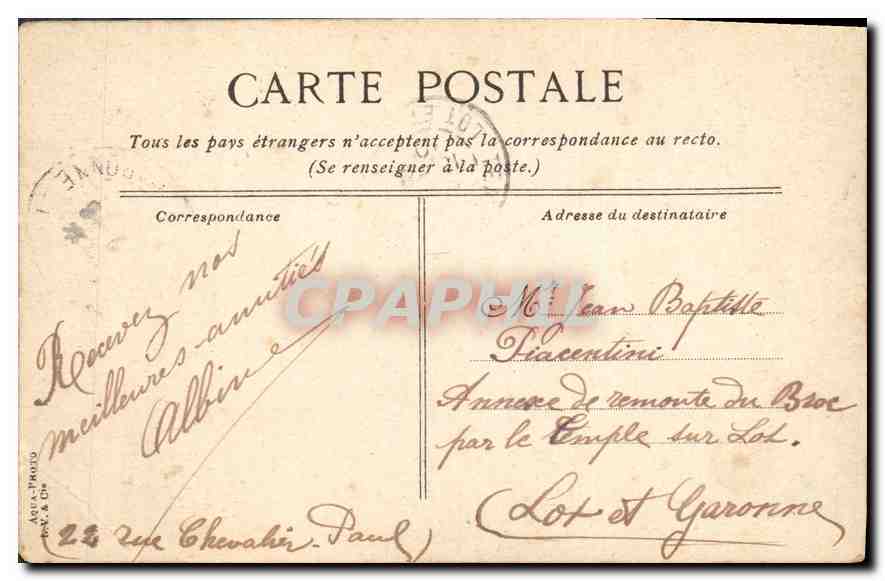 CARTE POSTALE
Tous les pays étrangers n'acceptent pas la correspondance au recto.
(Se renseigner à la poste.)
Correspondance
Recevez nos
meilleures amitiés
Albine
(22 rue Chevalier-Paul)
AQUA-PHOTO
L.V. & Cie
Adresse du destinataire
Mr Jean Baptiste
Piacentini
Annexe de remonte du Broc
par le Temple sur Lot.
(Lot et Garonne)
CPAPHIL